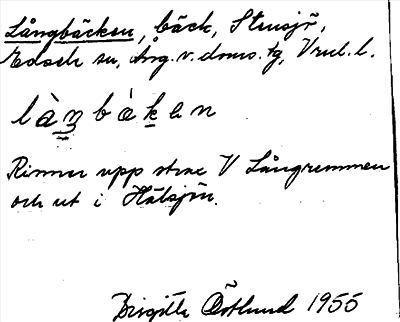 Långbäcken, bäck, Strusjö,
Edsele sn, Ång. v. doms. tg, Vrnl. l.
làŋbàkan
Rinner upp strax V Långremmen
och ut i Hälsjön.
Birgitta Östlund 1955